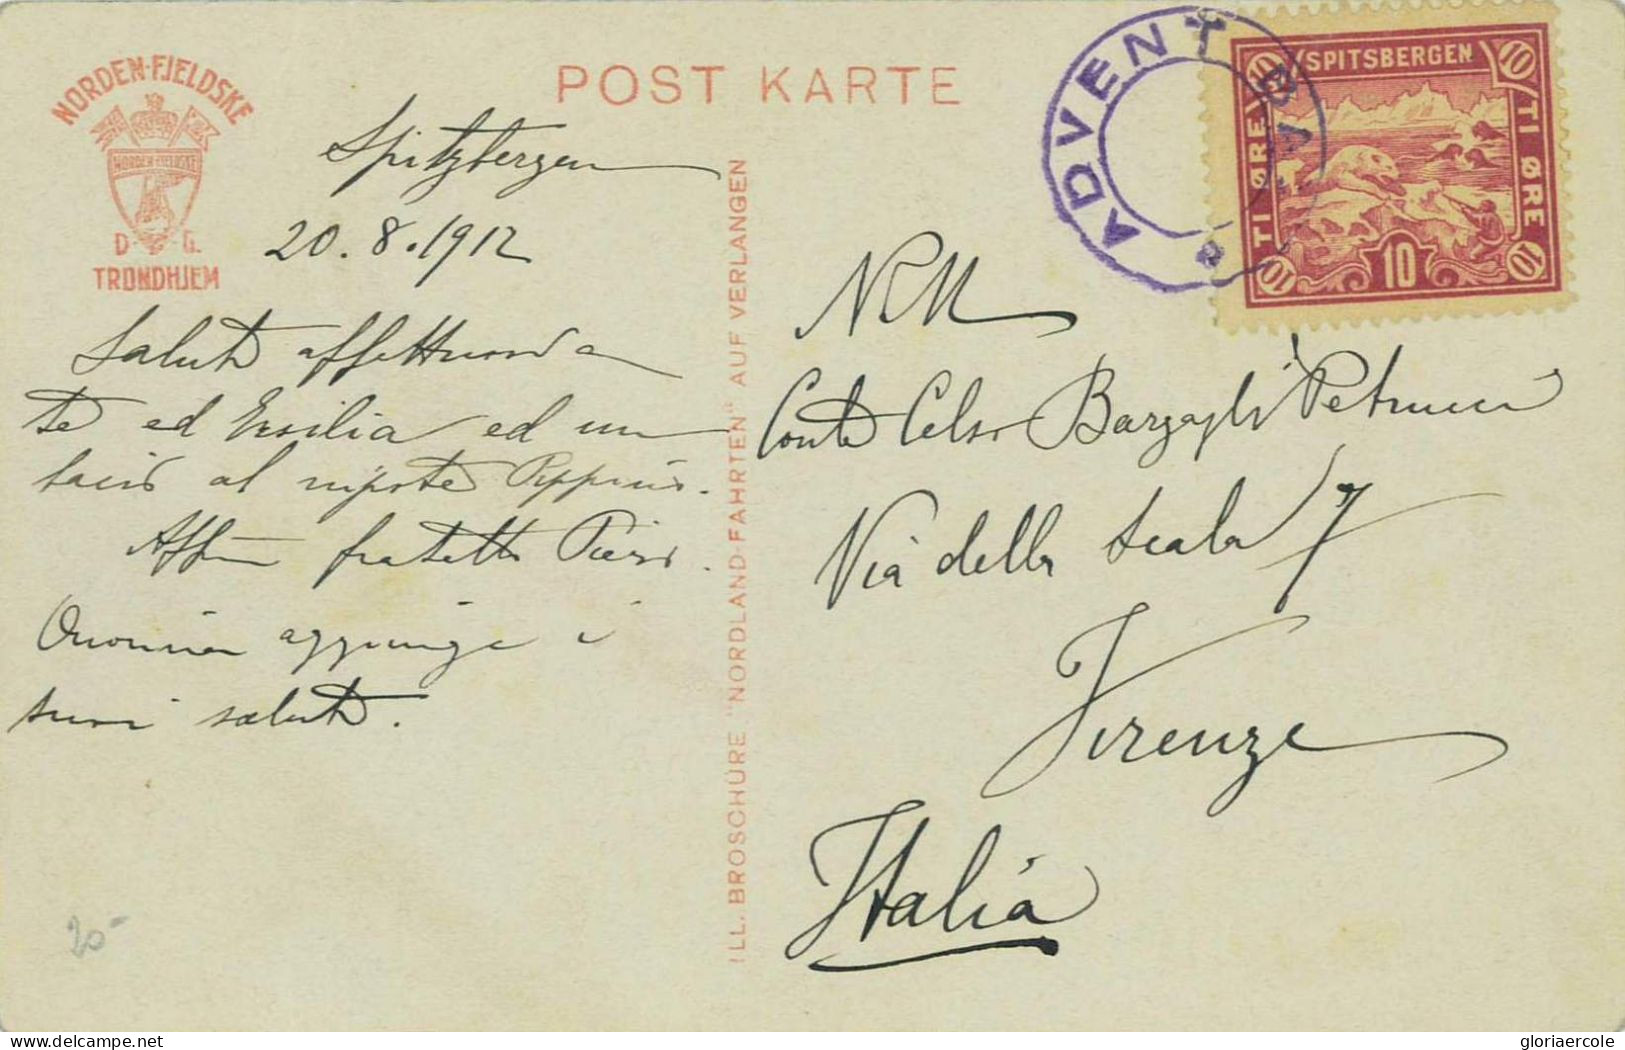 NORDEN-FJELDSKE
NORDEN-FJELDSKE
D. G.
TRONDHJEM
POST KARTE
ADVENT BAY
SPITSBERGEN
TI ØRE
TI ØRE
10
10
10
10
10
Spitzbergen
20.8.1912
Saluti affettuosi a
te ed Ersilia ed un
bacio al nipote Peppino.
Affmo fratello Piero.
aggiunge i
suoi saluti.
ILL. BROSCHÜRE "NORDLAND-FAHRTEN" AUF VERLANGEN
Conte Celso Barzagli Petrucci
Via della Scala 7
Firenze
Italia
20-
delcampe.net
gloriaercole